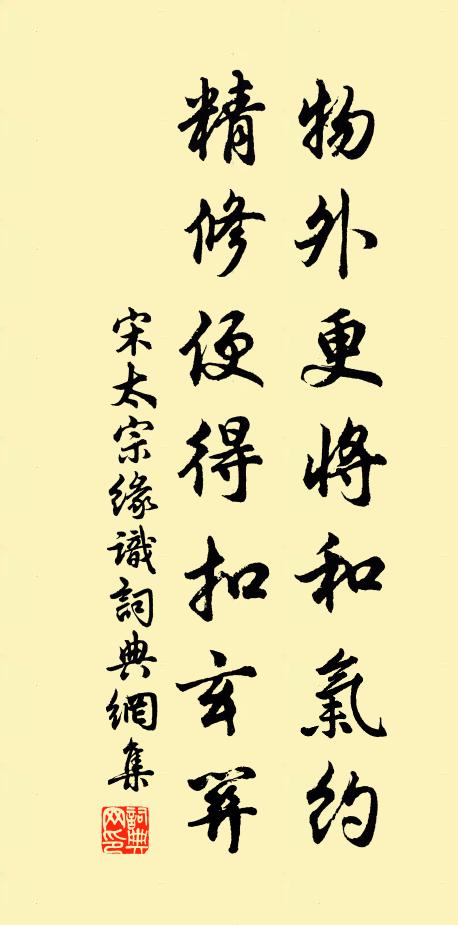 物外更將和氣約
精修便得扣玄關
宋太宗緣識詞典網集
詞典網印